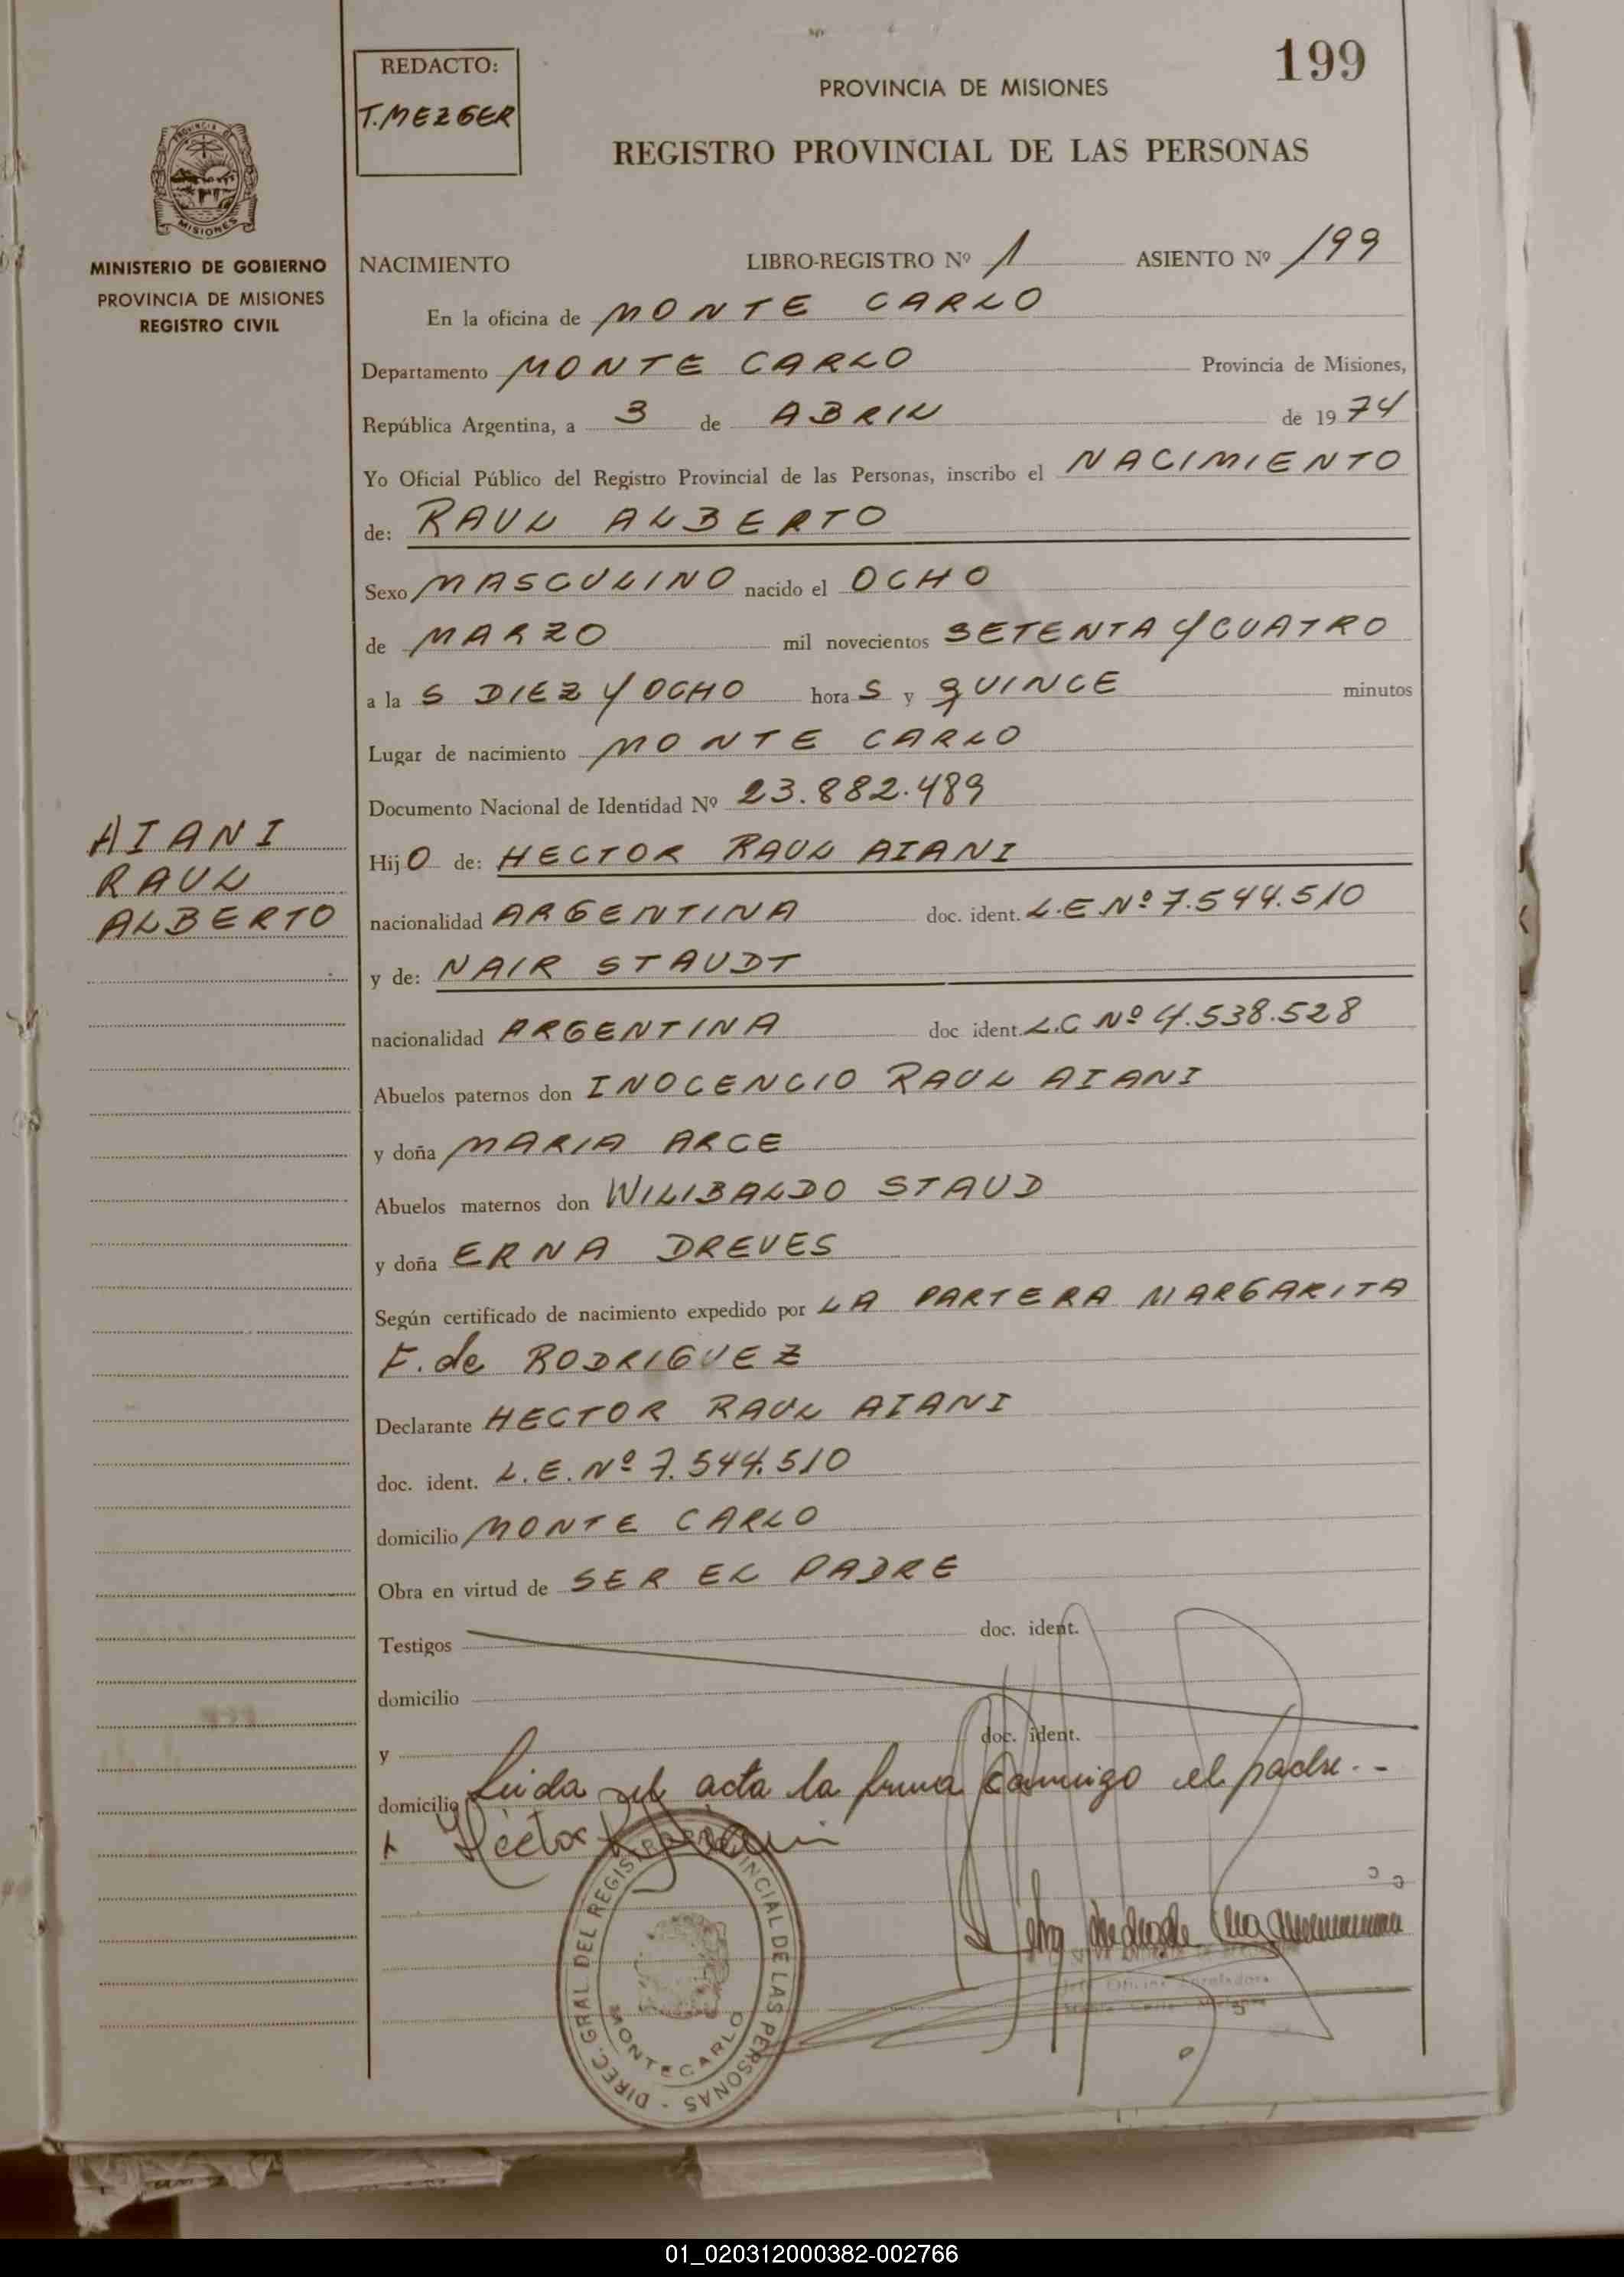 199
REDACTO:
T. MEZGER
PROVINCIA DE MISIONES
REGISTRO PROVINCIAL DE LAS PERSONAS
PROVINCIA DE
MISIONES
MINISTERIO DE GOBIERNO
PROVINCIA DE MISIONES
REGISTRO CIVIL
NACIMIENTO LIBRO-REGISTRO Nº 1 ASIENTO Nº 199
En la oficina de MONTE CARLO
Departamento MONTE CARLO Provincia de Misiones,
República Argentina, a 3 de ABRIL de 1974
Yo Oficial Público del Registro Provincial de las Personas, inscribo el NACIMIENTO
de: RAUL ALBERTO
Sexo MASCULINO nacido el OCHO
de MARZO mil novecientos SETENTA Y CUATRO
a la S DIEZ Y OCHO hora S y QUINCE minutos
Lugar de nacimiento MONTE CARLO
Documento Nacional de Identidad Nº 23.882.489
AIANI
RAUL
ALBERTO
Hij O de: HECTOR RAUL AIANI
nacionalidad ARGENTINA doc. ident. L.E Nº 7.544.510
y de: NAIR STAUDT
nacionalidad ARGENTINA doc ident. L.C Nº 4.538.528
Abuelos paternos don INOCENCIO RAUL AIANI
y doña MARIA ARCE
Abuelos maternos don WILIBALDO STAUD
y doña ERNA DREVES
Según certificado de nacimiento expedido por LA PARTERA MARGARITA
F. de RODRIGUEZ
Declarante HECTOR RAUL AIANI
doc. ident. L.E. Nº 7.544.510
domicilio MONTE CARLO
Obra en virtud de SER EL PADRE
Testigos doc. ident.
domicilio
y doc. ident.
domicilio Leida el acta la firma conmigo el padre.-
Héctor R. Aiani
DIREC. GRAL DEL REGISTRO PROVINCIAL DE LAS PERSONAS -
MONTECARLO
01_020312000382-002766